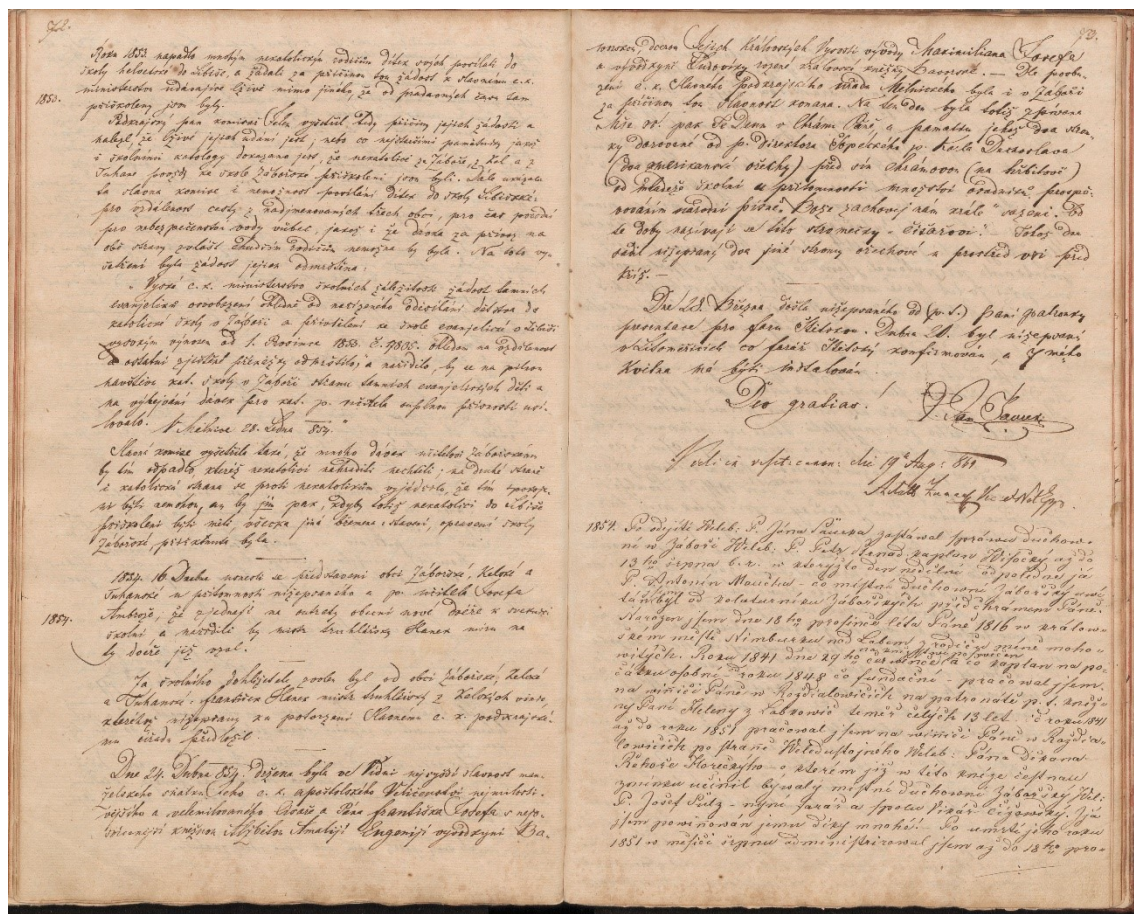 72.
Roku 1853 napadlo mnohým nekatolickým rodičům dítek svých posílati do
školy helvetské do Libiše, a žádali za příčinou tou žádost k slavnému c. k.
ministerstvu udávajíce lživě mimo jiného, že od pradavných časů tam
1853.
přiškoleny jsou byly.
Podkrajský pan komisař vyšetřil tedy příčiny jejich žádosti a
nalezl, že lživé jejich udání jest, nebo co nejstaršími památkami jakož
i školními katalogy dokázáno jest, že nekatolíci ze Záboře z Kel a z
Tuhaně povždy ke škole Zábořské přiškoleni jsou byli. Dále uznala
ta slavná komise i nemožnost posílání dítek do školy Libišské,
pro vzdálenost cesty z nadjmenovaných třech obcí, pro čas povodní
pro nebezpečenství vody vůbec, jakož i že
obě strany platit chudším rodičům nemožno by bylo. Na toto vy-
šetření byla žádost jejich odmrštěna:
„Vysoké c. k. ministerstvo školních záležitostí žádost tamních
evangelíků osvobození ohledně od nařízeného odesílání dětstva do
katolické školy v Záboři a přivtělení ke škole evangelické v Libiši
vysokým výnosem od 1. Prosince 1853. č. ohledem na vzdálenost
a ostatní zjištěné překážky odmrštilo, a nařídilo, by se na pilnou
návštěvu kat. školy v Záboři skrze tamních evanjelických dětí a
na vybejvání dávek pro kat. p. učitele úplnou přísností nalé-
halo. V Mělníce 28. Ledna 854.“
Slavná komise vyšetřila také, že mnoho dávek učiteli zábořskému
by tím odpadlo, kteréž nekatolíci nahraditi nechtěli; na druhé straně
i katolická strana se proti nekatolíkům vyjádřila, že tím spokoje-
ni býti nemohou, an by jim pak, kdyby totiž nekatolíci do Libiše
přiškoleni býti měli, všecka jiná břemena: stavění, opravení školy
Zábořské, přičítána byla.
1854. 16. Dubna usnesli se představení obcí Zábořské, Kelské a
Tuhanské v přítomnosti nížepsaného a p. učitele Josefa
Ambrože, že zjednají na outraty obecní nové dvéře k světnici
1854.
školní a nařídili by mistr truhlářský Hanek míru na
ty dvéře již vzal.
Za školního pohlížitele zvolen byl od obcí Zábořské, Kelské
a Tuhanské, František Hanek mistr truhlářský z Kelských vinic,
kteréhož nížepsaný za potvrzení Slavnému c. k. podkrajské-
mu ouřadu předložil.
Dne 24. Dubna 854. držena byla ve Vídni nejvyšší slavnost man-
želského sňatku Jeho c. k. apoštolského Veličenstva nejmilosti-
vějšího a velemilovaného Císaře a Pána Františka Josefa s nejo-
svícenější kněžnou Alžbětou Amalií Eugenií vývodkyní Ba-
73.
vorskou, dcerou Jejich Královských Vysostí vývody Maximiliana Josefa
a vývodkyně Ludoviky rozené královské kněžky Bavorské. — Dle pověb-
zení c. k. slavného Podkrajského úřadu Mělnického byla i v Záboři
za příčinou tou slavnost konaná. Na ten den byla totiž zpívaná
Mše sv. pak Te Deum v Chrámu Páně, a památku jehož dva strom-
ky darované od p. direktora Šopeckého p. Karla Drahoslava
(dva amerikánské ořechy) před sím chrámovou (na hřbitově)
od mládeže školní u přítomnosti množství oudníků prospě-
vováním národní písně „Bože zachovej nám krále“ sázeni. Od
té doby nazývají se tito stromečky – Císařovi! Totéž da-
roval nížepsaný dva jiné stromy ořechové u prostřed vsi před
kříž. —
Dne 28. Března došla nížepsaného od (p. t.) paní patronky
presentace pro faru Kitovou. Dubna 20. byl nížepsaný
v Litoměřicích co farář konfirmován, a 7 mého
Května má býti instalován.
Deo gratias! P. Jan Sauer
Vidi in visit. canon: die 19 Aug: 861
1854. Po odjití Weleb: P. Jana Saurka zastával správu duchow-
ní w Záboři Weleb: P. Petr kaplan Wisocký až do
13ho srpna b. r. w kterýžto den nedělní odpoledne já
P. Antonín Macúch – co místní duchowní Zábořský uwe
tán byl od kolaturníků Zábořských před chrámem Páně.
Narozen jsem dne 18ho prosince léta Páně 1816 w králow-
ském městě Nimburku nad Labem z rodičů méně moho-
witých. Roku 1841 dne 29ho července na kněze poswěcen a co kaplan na po-
čátku osobní – roku 1848 co fundační – pracowal jsem
na winici Páně w Rozdialowicích na patronátě p. t. kněž-
ny Paní Heleny z Lobkowic téměř celých 13 let. Od roku 1841
až do roku 1851 pracowal jsem na winici Páně w Rozdia-
lowicích po straně Weledůstojného Weleb: Pána Děkana
Řehoře Horečkyho – o kterém již w této knize čestnau
zmínku učinil bywalý místní duchowní Zábořský Wel:
P. Josef Pulz – nyní farář a spolu Wikář Čížowský. I já
jsem powinowán jemu díky mnohé! – Po úmrtí jeho roku
1851 w měsíci srpnu administrirowal jsem až do 18ho pro-